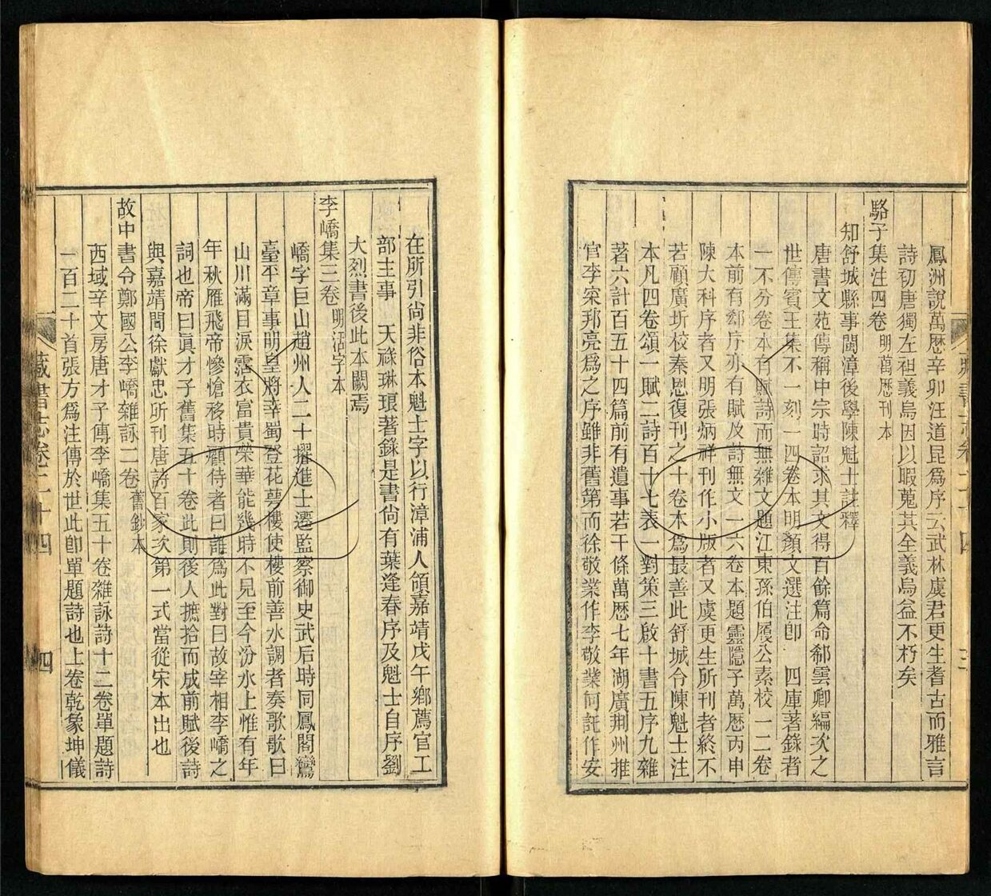 鳳洲說萬厯辛卯汪道昆爲序云武林虞君更生耆古而雅言
詩初唐獨左袒義烏因以暇蒐其全義烏益不朽矣
駱子集注四卷明萬厯刊本
知舒城縣事閩漳後學陳魁士註釋
唐書文苑傳稱中宗時詔求其文得百餘篇命郗雲卿編次之
世傳賓王集不一刻一四卷本明顏文選注卽 四庫著錄者
一不分卷本有賦詩而無雜文題江東孫伯履公素校一二卷
本前有郗序亦有賦及詩無文一六卷本題靈隱子萬厯丙申
陳大科序者又明張炳祥刊作小版者又虞更生所刊者終不
若顧廣圻校秦恩復刊之十卷本爲最善此舒城令陳魁士注
本凡四卷頌一賦二詩百十七表一對策三啟十書五序九雜
著六計百五十四篇前有遺事若干條萬厯七年湖廣荆州推
官李寀邦亮爲之序雖非舊第而徐敬業作李敬業何託作安
在所引尙非俗本魁士字以行漳浦人領嘉靖戊午鄉薦官工
部主事 天祿琳琅著錄是書尙有葉逢春序及魁士自序劉
大烈書後此本闕焉
李嶠集三卷明活字本
嶠字巨山趙州人二十擢進士遷監察御史武后時同鳳閣鸞
臺平章事明皇將幸蜀登花萼樓使樓前善水調者奏歌歌曰
山川滿目淚霑衣富貴榮華能幾時不見至今汾水上惟有年
年秋雁飛帝慘愴移時顧侍者曰誰爲此對曰故宰相李嶠之
詞也帝曰眞才子舊集五十卷此則後人摭拾而成前賦後詩
與嘉靖間徐獻忠所刊唐詩百家次第一式當從宋本出也
故中書令鄭國公李嶠雜詠二卷舊鈔本
西域辛文房唐才子傳李嶠集五十卷雜詠詩十二卷單題詩
一百二十首張方爲注傳於世此卽單題詩也上卷乾象坤儀
藏書志卷二十四 四